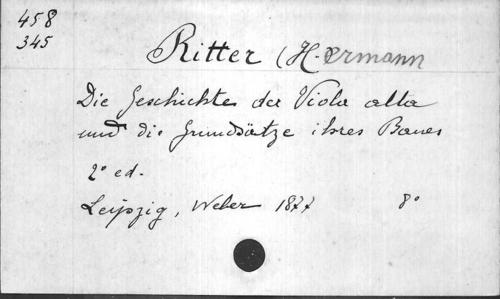 458
345
Ritter (H. ermann
Die Geschichte der Viola alta
und die Grundsätze ihres Baues
2° ed.
Leipzig, Weber 1877 8°